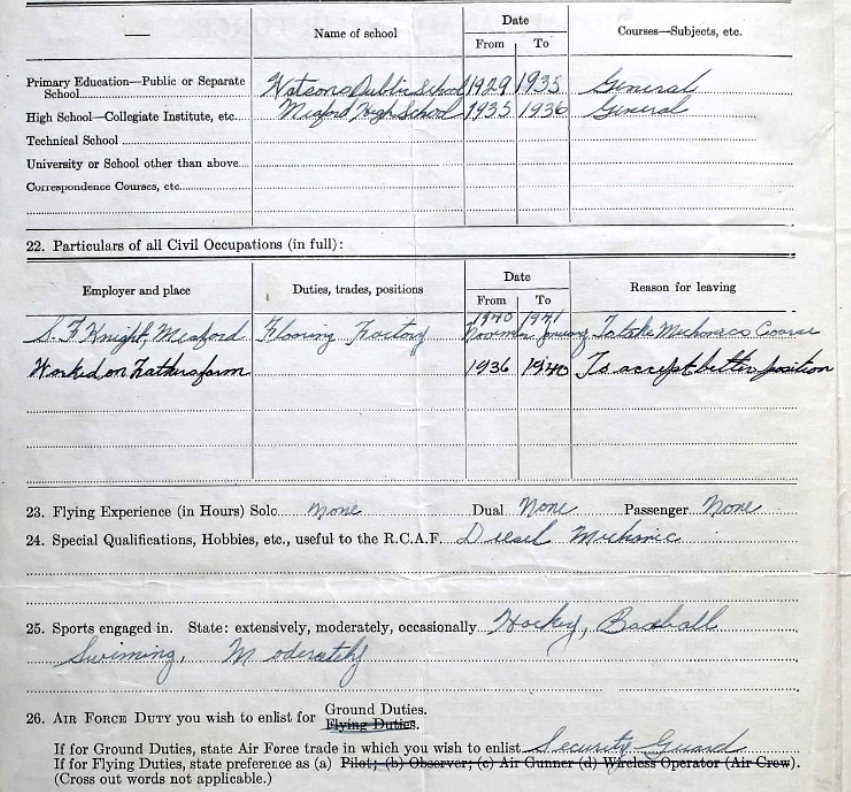 Name of school
Date
From To
Courses—Subjects, etc.
Primary Education—Public or Separate
School Watsons Public School 1929 1935 General
High School—Collegiate Institute, etc. Meaford High School 1935 1936 General
Technical School
University or School other than above
Correspondence Courses, etc.
22. Particulars of all Civil Occupations (in full):
Employer and place
Duties, trades, positions
Date
From To
Reason for leaving
1940 1941
S. F Knight, Meaford Flooring Factory January To take Mechanics Coarse
Worked on Fathers farm 1936 1940 To accept better position
23. Flying Experience (in Hours) Solo None Dual None Passenger None
24. Special Qualifications, Hobbies, etc., useful to the R.C.A.F. Diesel Mechanic
25. Sports engaged in. State: extensively, moderately, occasionally Hockey, Baseball
Swiming, Moderately
26. AIR FORCE DUTY you wish to enlist for Ground Duties.
Flying Duties.
If for Ground Duties, state Air Force trade in which you wish to enlist Security Guard
If for Flying Duties, state preference as (a) Pilot; (b) Observer; (c) Air Gunner (d) Wireless Operator (Air Crew).
(Cross out words not applicable.)